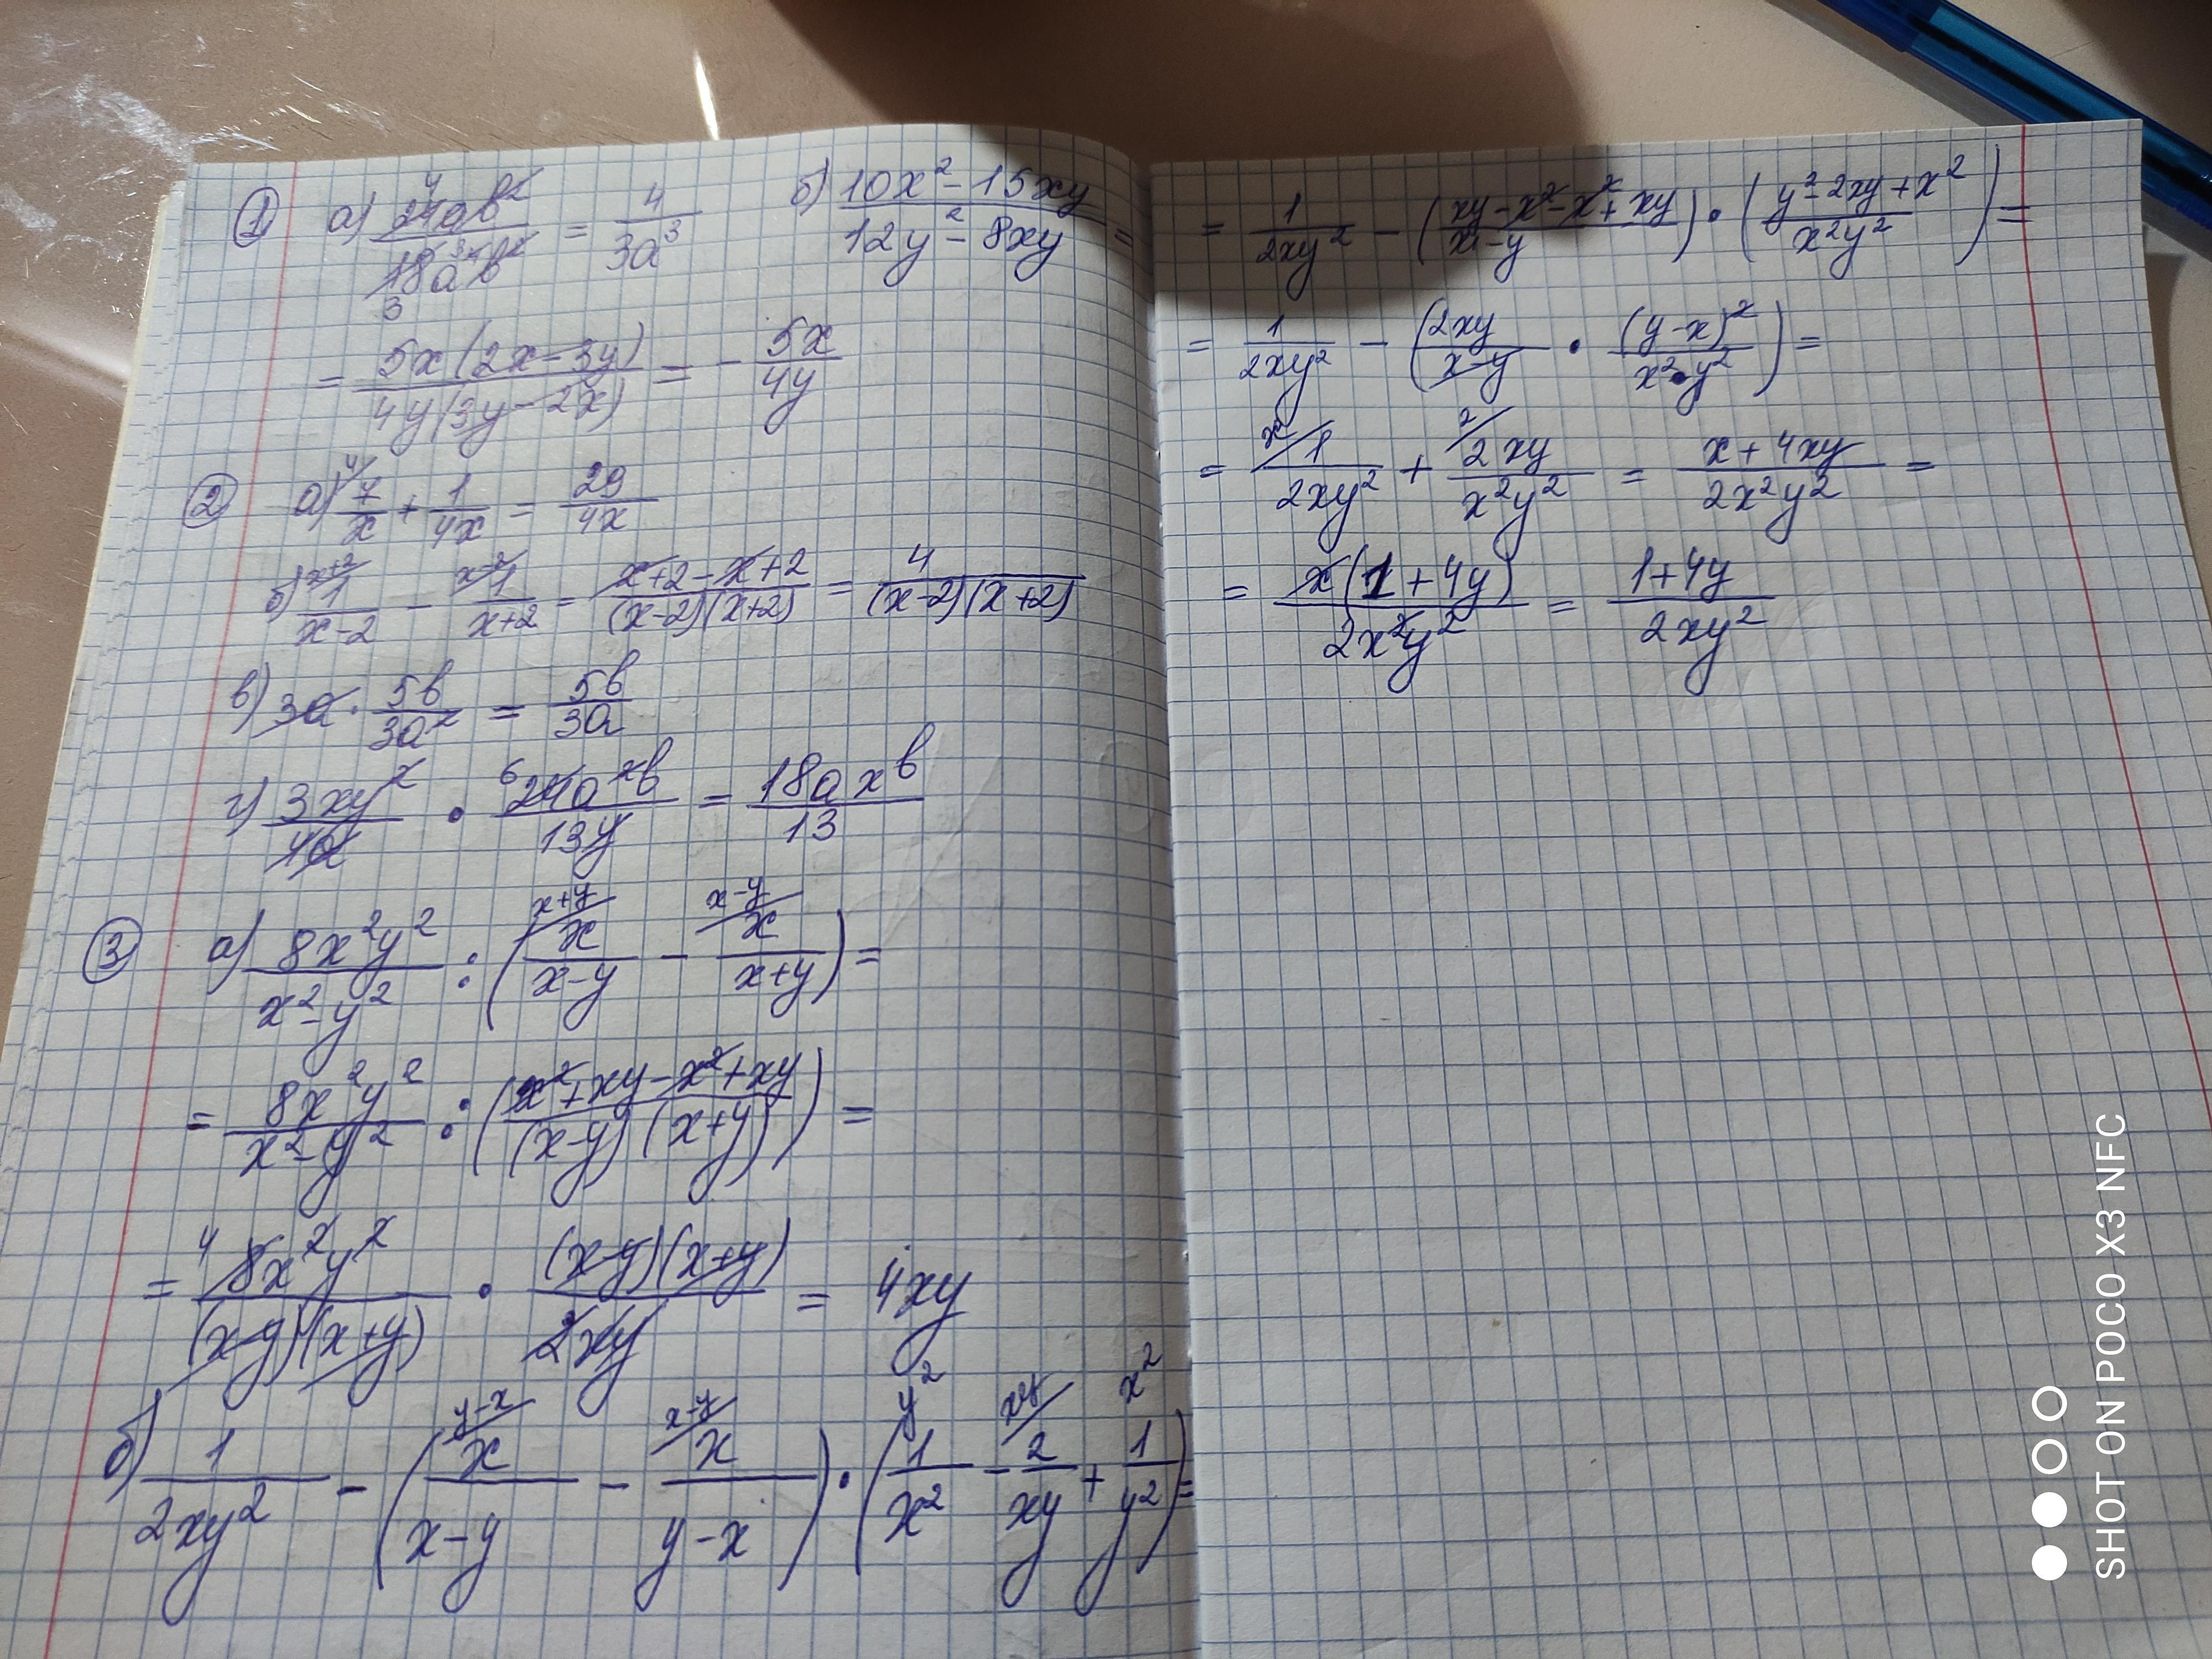 ① а) 24ab²/18a⁴b² = 4/3a³ б) (10x² - 15xy)/(12y² - 8xy) =
= 5x(2x - 3y)/4y(3y - 2x) = - 5x/4y
② а) ⁴/7/x + 1/4x = 29/4x
б) ˣ⁺²/1/(x-2) - ˣ⁻²/1/(x+2) = (x+2-x+2)/(x-2)(x+2) = 4/(x-2)(x+2)
в) 3a · 5b/3a² = 5b/3a
г) 3xy²/4a · 6 24a²b/13y = 18axb/13
③ а) 8x²y²/(x²-y²) : (ˣ⁺ʸ/x/(x-y) - ˣ⁻ʸ/x/(x+y)) =
= 8x²y²/(x²-y²) : ((x²+xy-x²+xy)/(x-y)(x+y)) =
= 4 8x²y²/(x-y)(x+y) · (x-y)(x+y)/2xy = 4xy
б) 1/2xy² - (ʸ⁻ˣ/x/(x-y) - ˣ⁻ʸ/x/(y-x)) · (y² 1/x² - ˣʸ/2/xy + x² 1/y²) =
= 1/2xy² - ((xy-x²-x²+xy)/(x-y)) · ((y²-2xy+x²)/x²y²) =
= 1/2xy² - (2xy/(x-y) · (y-x)²/x²·y²) =
= ˣ/1/2xy² + ²/2xy/x²y² = (x+4xy)/2x²y² =
= x(1+4y)/2x²y² = (1+4y)/2xy²
SHOT ON POCO X3 NFC